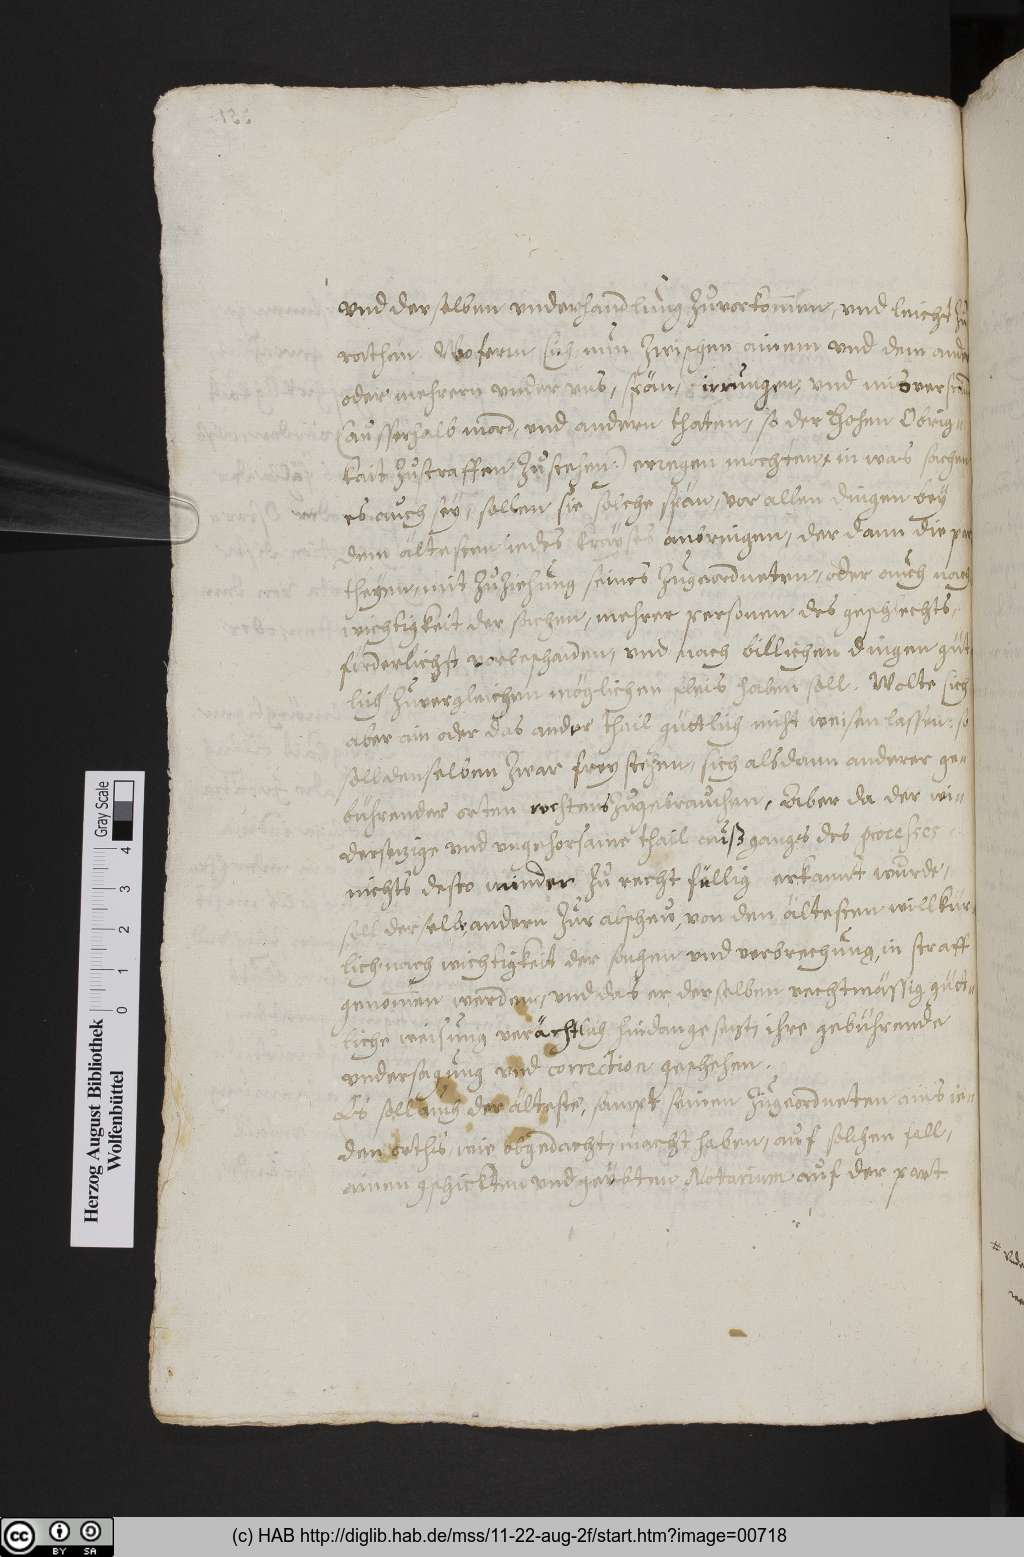 vnd derselben vnderhandlung zuuorkommen, vnd leicht zu
rathen. Wofern sich nun zwischen ainem vnd dem ander
oder mehrern vnder vns, spän, irrungen, vnd misverstand
(ausserhalb mord, vnd andern thaten, so der Hohen Obrig-
kait zustraffen zustehen) erregen möchten, in was sachen
es auch seÿ, sollen sie solche spän, vor allen dingen beÿ
dem ältesten iedes kraÿses anbringen, der dann die par
theÿen, mit zuziehung seines zugeordneten, oder auch nach
wichtigkeit der sachen, mehrer personen des geschlechts,
fürderlichst vorbeschaiden, vnd nach billichen dingen güt
lich zuuergleichen möglichen fleis haben soll. Wolte sich
aber ain oder das ander thail güttlich nicht weisen lassen: so
soll denselben zwar freÿ stehen, sich alsdann anderer ge-
bührender orten rechtens zugebrauchen, Aber da der wi-
dersinnige vnd vngehorsame thail außgangs des processes
nichts desto minder zu recht fällig erkannt wurde,
soll derselb andern zur abscheu, von den ältesten willkür-
lich nach wichtigkeit der sachen vnd verbrechung, in straff
genommen werden, vnd das er derselben rechtmässig gütt-
liche weisung verächtlich hindangesetzt, ihre gebührende
vndersagung vnd correction geschehen.
Es soll auch der älteste, sampt seinen zugeordneten ains ie-
den orths, wie obgedacht, macht haben, auf solchen fall,
ainen geschickten vnd geübten Notarium auf der part
Herzog August Bibliothek
Wolfenbüttel
0 1 2 3 4
Gray Scale
cc BY SA
(c) HAB http://diglib.hab.de/mss/11-22-aug-2f/start.htm?image=00718